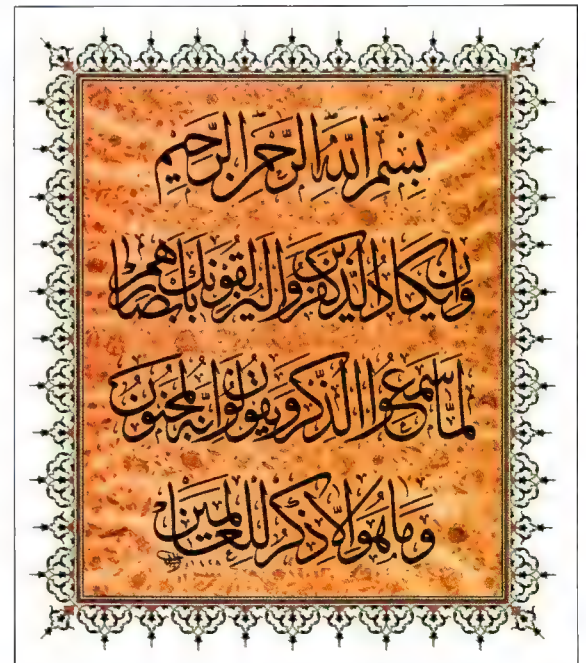 بِسْمِ اللَّهِ الرَّحْمَٰنِ الرَّحِيمِ
وَإِن يَكَادُ الَّذِينَ كَفَرُوا لَيُزْلِقُونَكَ بِأَبْصَارِهِمْ
لَمَّا سَمِعُوا الذِّكْرَ وَيَقُولُونَ إِنَّهُ لَمَجْنُونٌ
وَمَا هُوَ إِلَّا ذِكْرٌ لِّلْعَالَمِينَ